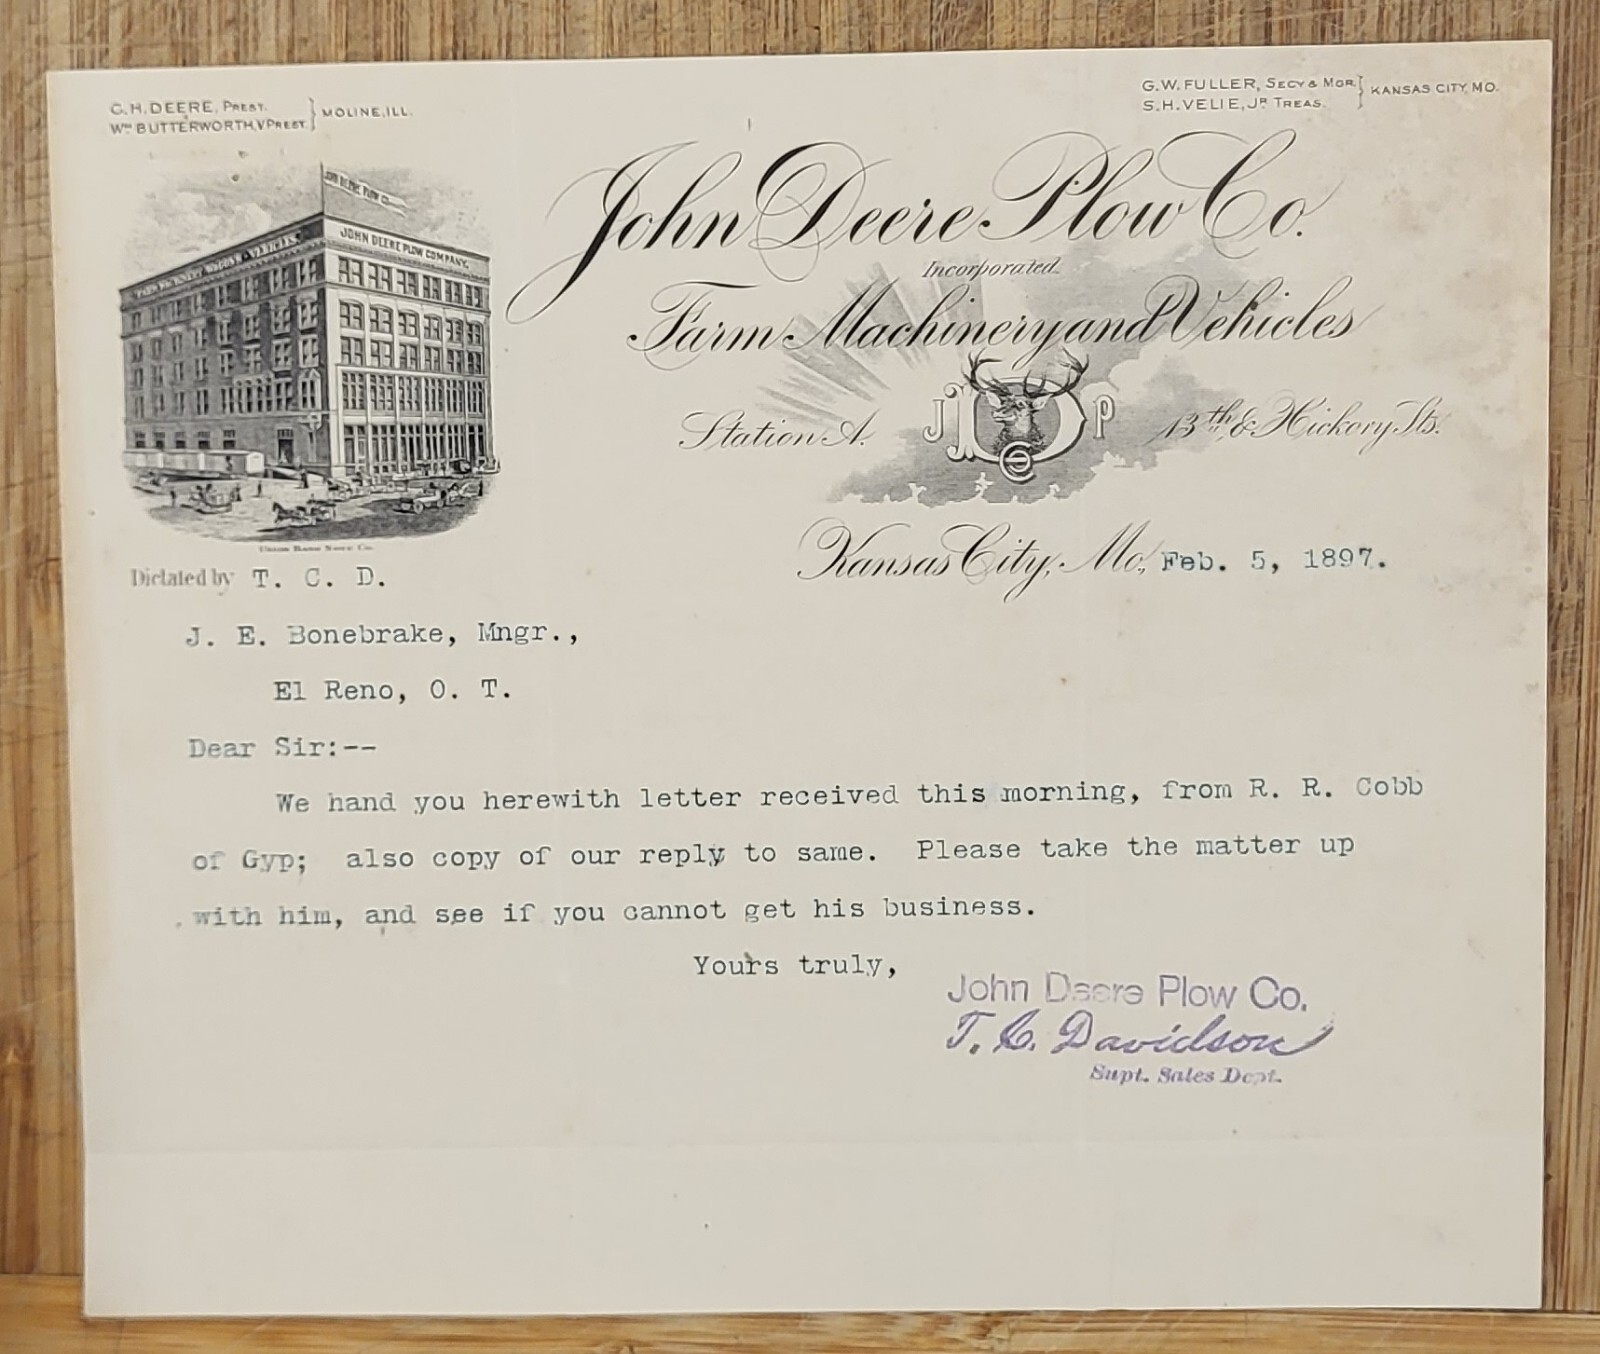 C.H. DEERE, PREST.
WM BUTTERWORTH, V PREST. } MOLINE, ILL.
G.W. FULLER, SECY & MGR.
S.H. VELIE, JR TREAS. } KANSAS CITY, MO.
JOHN DEERE PLOW CO.
FARM MACHINERY WAGONS & VEHICLES.
JOHN DEERE PLOW COMPANY.
John Deere Plow Co.
Incorporated.
Farm Machinery and Vehicles
Station A.
J D P
Co
13th & Hickory Sts.
Union Bank Note Co.
Kansas City, Mo., Feb. 5, 1897.
Dictated by T. C. D.
J. E. Bonebrake, Mngr.,
El Reno, O. T.
Dear Sir:--
We hand you herewith letter received this morning, from R. R. Cobb
of Gyp; also copy of our reply to same. Please take the matter up
with him, and see if you cannot get his business.
Yours truly,
John Deere Plow Co.
T. C. Davidson
Supt. Sales Dept.